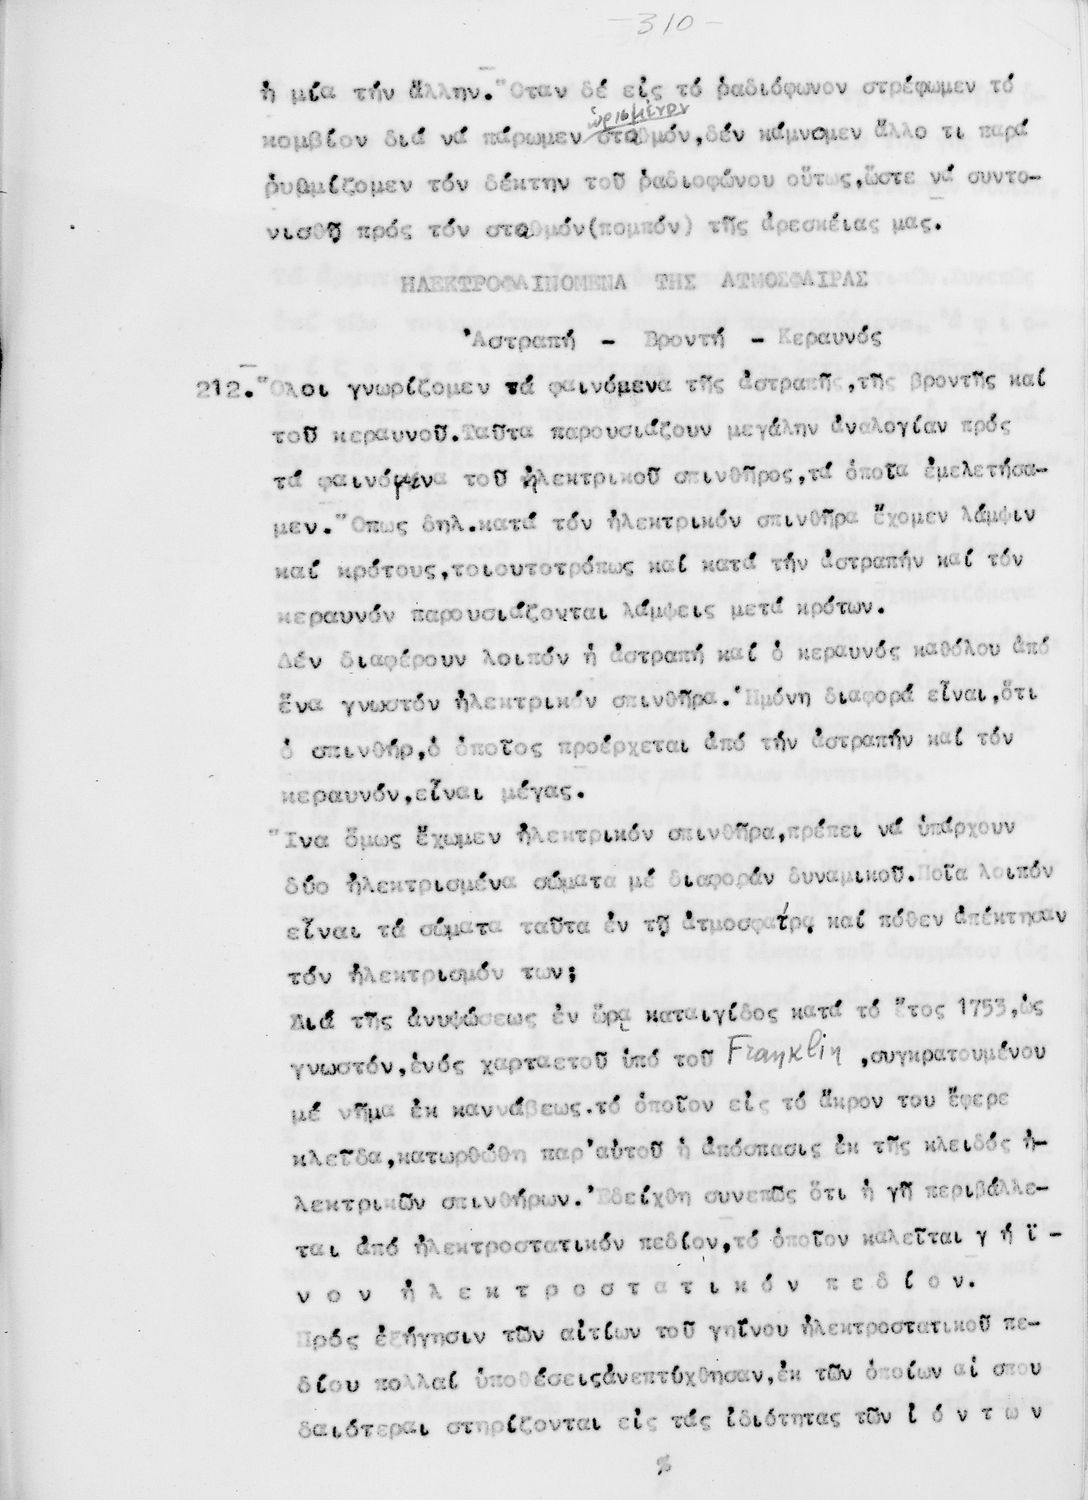 -310-
ἡ μία τήν ἄλλην. Ὅταν δέ εἰς τό ῥαδιόφωνον στρέφωμεν τό
ὡρισμένον
κομβίον διά νά πάρωμεν σταθμόν,δέν κάμνομεν ἄλλο τι παρά
ῥυθμίζομεν τόν δέκτην τοῦ ῥαδιοφώνου οὕτως,ὥστε νά συντο-
νισθῇ πρός τόν σταθμόν(πομπόν) τῆς ἀρεσκέιας μας.
ΗΛΕΚΤΡΟΦΑΙΝΟΜΕΝΑ ΤΗΣ ΑΤΜΟΣΦΑΙΡΑΣ
Ἀστραπή - Βροντή - Κεραυνός
212. Ὅλοι γνωρίζομεν τά φαινόμενα τῆς ἀστραπῆς,τῆς βροντῆς καί
τοῦ κεραυνοῦ.Ταῦτα παρουσιάζουν μεγάλην ἀναλογίαν πρός
τά φαινόμενα τοῦ ἠλεκτρικοῦ σπινθῆρος,τά ὁποῖα ἐμελετήσα-
μεν. Ὅπως δηλ.κατά τόν ἠλεκτρικόν σπινθῆρα ἔχομεν λάμψιν
καί κρότους,τοιουτοτρόπως καί κατά τήν ἀστραπήν καί τόν
κεραυνόν παρουσιάζονται λάμψεις μετά κρότων.
Δέν διαφέρουν λοιπόν ἡ ἀστραπή καί ὁ κεραυνός καθόλου ἀπό
ἕνα γνωστόν ἠλεκτρικόν σπινθῆρα. Ἡμόνη διαφορά εἶναι,ὅτι
ὁ σπινθήρ,ὁ ὁποῖος προέρχεται ἀπό τήν ἀστραπήν καί τόν
κεραυνόν,εἶναι μέγας.
Ἵνα ὅμως ἔχωμεν ἠλεκτρικόν σπινθῆρα,πρέπει νά ὑπάρχουν
δύο ἠλεκτρισμένα σώματα μέ διαφοράν δυναμικοῦ.Ποῖα λοιπόν
εἶναι τά σώματα ταῦτα ἐν τῇ ἀτμοσφαίρᾳ καί πόθεν ἀπέκτησαν
τόν ἠλεκτρισμόν των;
Διά τῆς ἀνυψώσεως ἐν ὥρᾳ καταιγίδος κατά τό ἔτος 1753,ὡς
γνωστόν,ἑνός χαρταετοῦ ὑπό τοῦ Franklin ,συγκρατουμένου
μέ νῆμα ἐκ καννάβεως.τό ὁποῖον εἰς τό ἄκρον του ἔφερε
κλεῖδα,κατωρθώθη παρ'αὐτοῦ ἡ ἀπόσπασις ἐκ τῆς κλειδός ἠ-
λεκτρικῶν σπινθήρων. Ἐδείχθη συνεπῶς ὅτι ἡ γῆ περιβάλλε-
ται ἀπό ἠλεκτροστατικόν πεδίον,τό ὁποῖον καλεῖται γ ή ϊ -
ν ο ν ἠ λ ε κ τ ρ ο σ τ α τ ι κ ό ν π ε δ ί ο ν.
Πρός ἐξήγησιν τῶν αἰτίων τοῦ γηΐνου ἠλεκτροστατικοῦ πε-
δίου πολλαί ὑποθέσειςἀνεπτύχθησαν,ἐκ τῶν ὁποίων αἱ σπου
δαιότεραι στηρίζονται εἰς τάς ἰδιότητας τῶν ἰ ό ν τ ω ν
%